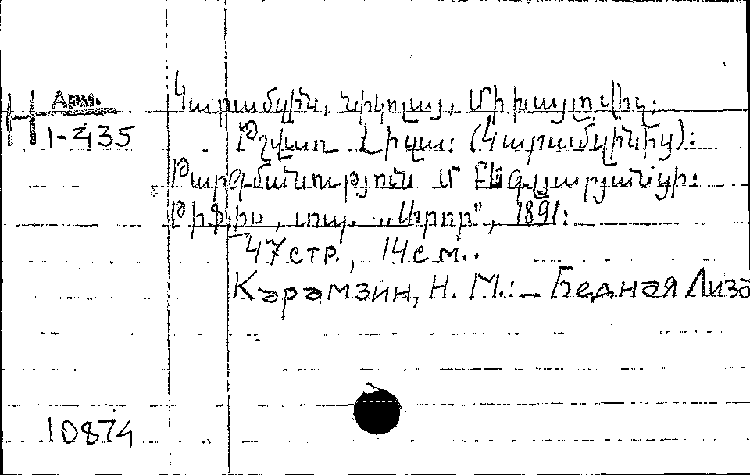 Арм.
Կարամզին, Նիկոլայ, Միխայլովիչ.
1-435
Թշվառ Լիզա: (Կարամզինից):
Թարգմանություն Մ Եեգլյարյանցի:
Թիֆլիս, տպ. „Արոր", 1891:
47 стр., 14 см..
Карамзин, Н. М.:- Бедная Лиза
10874